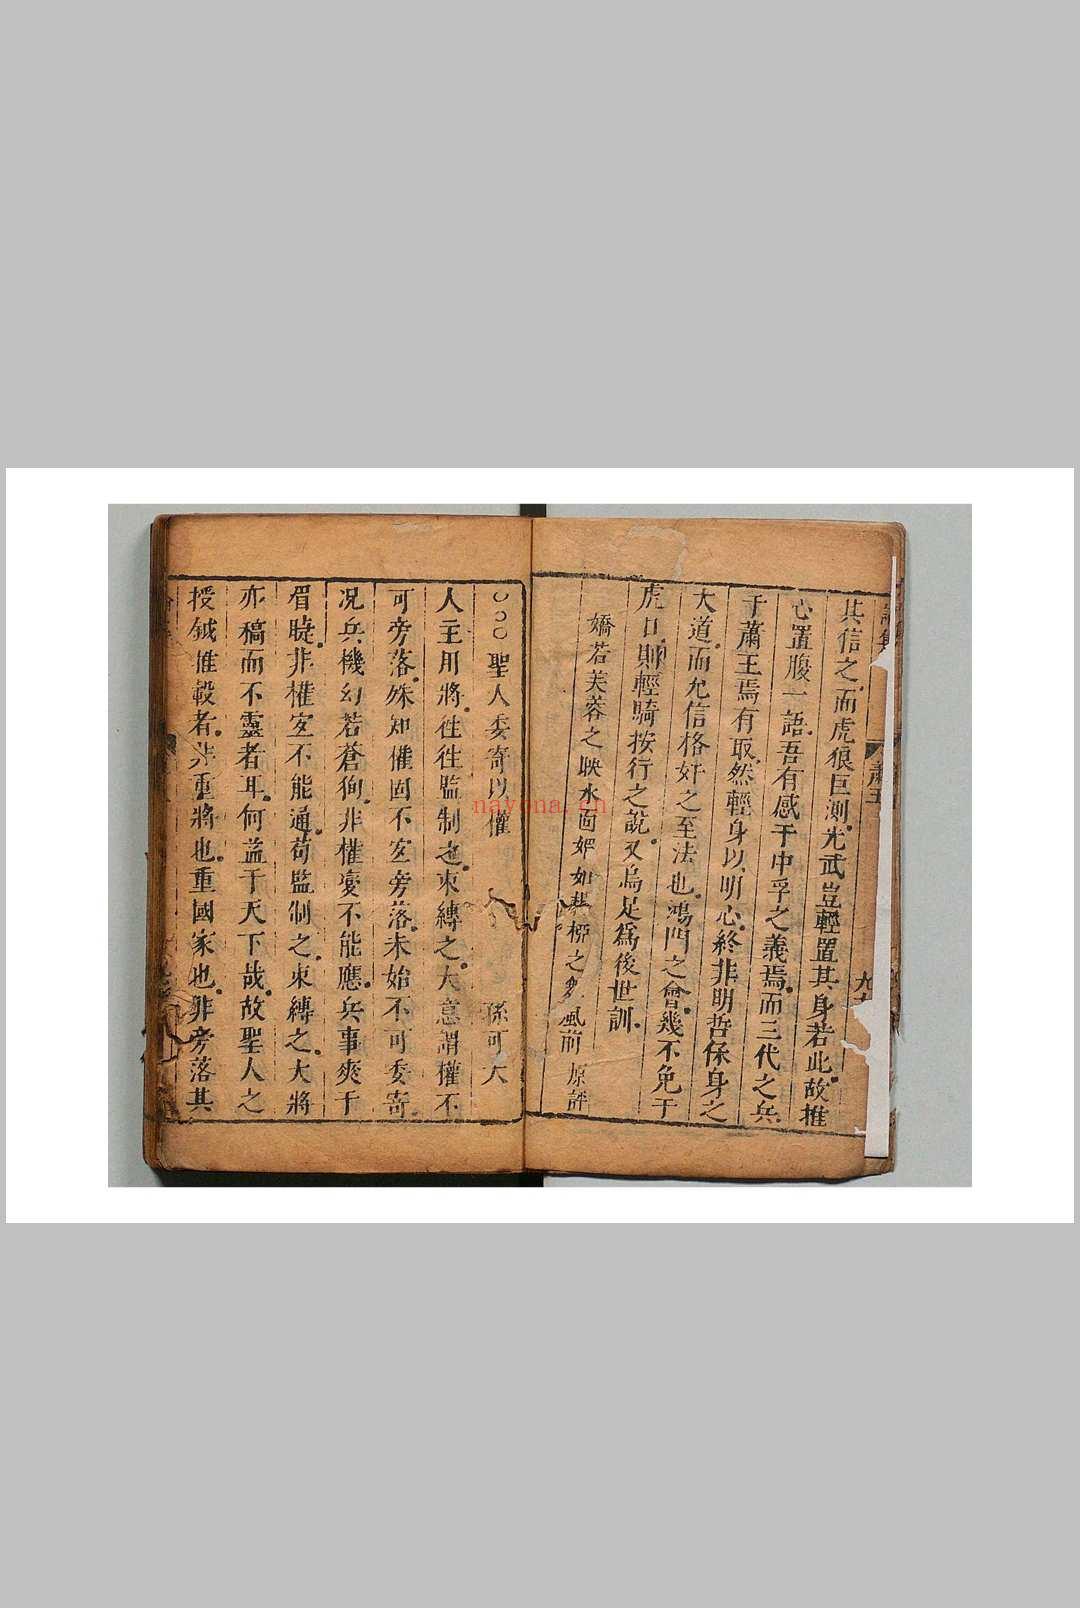 其信之而虎狼叵測光武豈輕置其身若此故推
心置腹一語吾有感于中孚之義焉而三代之兵
于蕭王焉有取然輕身以明心終非明哲保身之
大道而允信格奸之至法也鴻門之會幾不免于
虎口則輕騎按行之說又烏足爲後世訓
嬌若芙蓉之映水 風前 原評
聖人委寄以權 孫可大
人主用將徃徃監制之束縛之大意謂權不
可旁落殊知權固不宐旁落未始不可委寄
况兵機幻若蒼狗非權變不能應兵事爽于
眉睫非權宐不能通苟監制之束縛之大將
亦稿而不靈者耳何益于天下哉故聖人之
授鉞推轂者非重將也重國家也非旁落其
nayona.cn